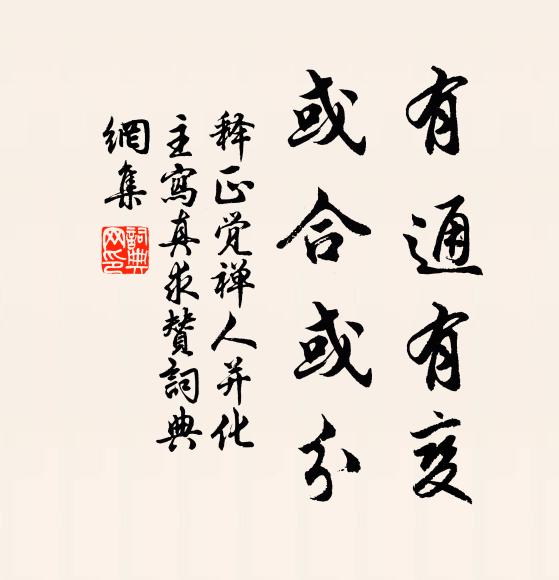 有通有变
或合或分
释正觉禅人并化
主寫真求赞詞典
網集
詞典网印